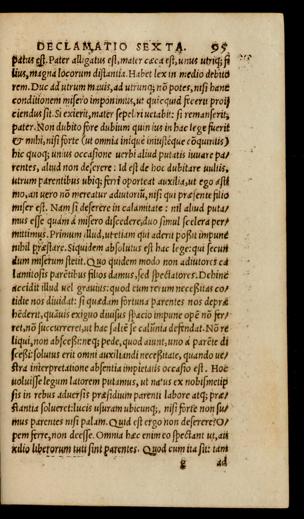 DECLAMATIO SEXTA. 95
patus est. Pater alligatus est, mater cæca est, unus utriq; fi
lius, magna locorum distantia. Habet lex in medio debito
rem. Duc ad utrum mauis, ad utrunq; nõ potes, nisi hanc
conditionem misero imponimus, ut quicquid fecerit proij
ciendus sit. Si exierit, mater sepeliri uetabit: si remanserit,
pater. Non dubito fore dubium quin ius in hac lege fuerit
& mihi, nisi forte (ut omnia iniquè iniustéque cõquiritis)
hic quoq; unius occasione uerbi aliud putatis iuuare pa-
rentes, aliud non deserere: Id est de hoc dubitare uultis,
utrum parentibus ubiq; ferri oporteat auxilia, ut ego æsti
mo, an uero nõ mereatur adiutoriũ, nisi qui præsente filio
miser est. Nam si deserere in calamitate: nil aliud puta-
mus esse quàm à misero discedere, duo simul scelera per-
mittimus. Primum illud, ut etiam qui aderit possit impune
nihil præstare. Siquidem absolutus est hac lege: qui secun
dum miserum stetit. Quo quidem modo non adiutores ca
lamitosis parẽtibus filios damus, sed spectatores. Dehinc
accidit illud uel grauius: quod cum rerum necessitas co-
tidie nos diuidat: si quædam fortuna parentes nos depræ
hẽderit, quãuis exiguo diuisus spacio impune opẽ nõ fer-
ret, nõ succurreret, ut hac saltẽ se calũnia defendat. Nõ re
liqui, non abscessi: neq; pede, quod aiunt, uno à parẽte di
scessi: solutus erit omni auxiliandi necessitate, quando ue-
stra interpretatione absentia impietatis occasio est. Hoc
uoluisse legum latorem putamus, ut natus ex nobismetip
sis in rebus aduersis præsidium parenti labore atq; præ-
stantia solueret: lucis usuram ubicunq;, nisi forte non su-
mus parentes nisi palam. Quid est ergo non deserere? O-
pem ferre, non deesse. Omnia hæc enim eo spectant ut, au
xilio liberorum tuti sint parentes. Quod cum ita sit: tam
g ad